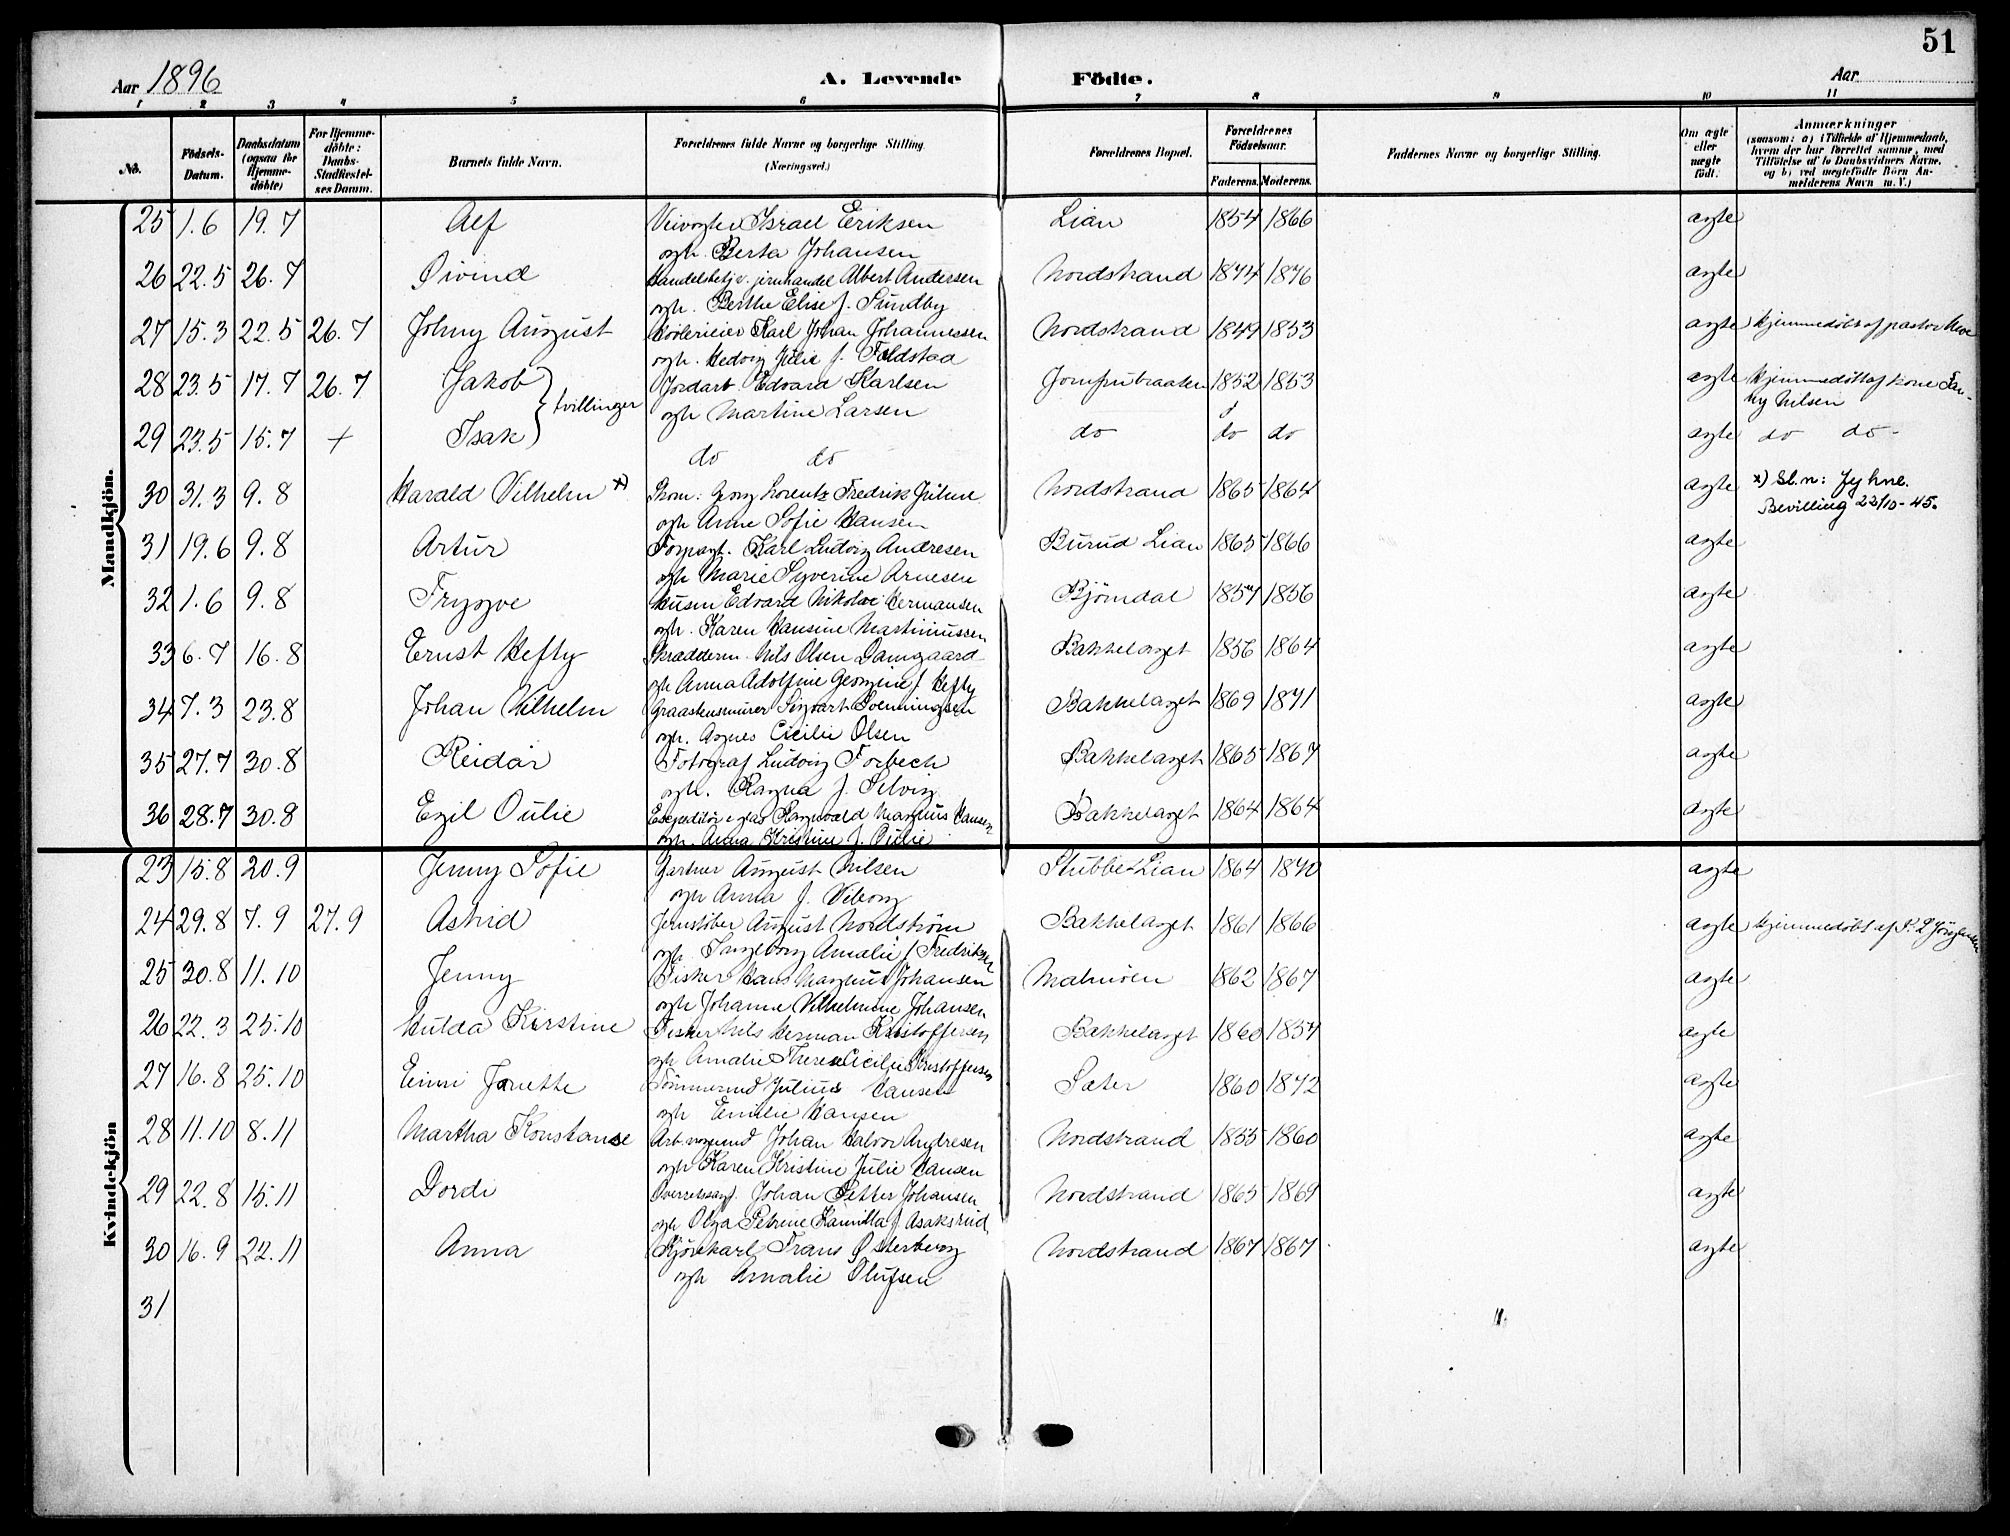 51
Aar 1896 A. Levende Födte. Aar
1 2 3 4 5 6 7 8 9 10 11
No. Födsels-Datum. Daabsdatum (ogsaa for Hjemme-döbte) For Hjemme-döbte: Daabs-Stadfæstel-ses Datum. Barnets fulde Navn. Forældrenes fulde Navne og borgerlige Stilling. (Næringsvei.) Forældrenes Bopæl. Forældrenes Födselsaar. Faderens. Moderens. Faddernes Navne og borgerlige Stilling. Om ægte eller uægte födt. Anmærkninger (saasom: a) i Tilfælde af Hjemmedaab, hvem der har forrettet samme, med Tilföielse af to Daabsvidners Navne, og b) ved uægtefödte Börn An-melderens Navn m. V.)
Mandkjön.
25 1.6 19.7 Alf Veivogter Israel Eriksen Lian 1854 1866 ægte
ogh. Berta Johansen
26 22.5 26.7 Øivind Handelsbetj v. jernhandel Albert Andersen Nordstrand 1874 1876 ægte
ogh. Berthe Elise f. Sundby
27 15.3 22.5 26.7 Johny August Karl Johan Johannessen Nordstrand 1853 ægte Hjemmedöbt af pastor
ogh. Hedvig Julie f. Foldstad
28 23.5 17.7 26.7 Jakob } tvillinger Jordarb. Edvard Karlsen Jomfrubraaten 1852 1853 ægte Hjemmedöbt af kone Fan-
ogh Martine Larsen ny Nilsen
29 23.5 15.7 + Isak do do do do do ægte do do -
30 31.3 9.8 Harald Vilhelm x) Skom: Georg Lorentz Fredrik Nordstrand 1865 1864 ægte x) Sl.n: Jyhne.
ogh Anne Sofie Hansen Bevilling 22/10-45.
31 19.6 9.8 Artur Forpagt. Karl Ludvig Andresen Burud Lian 1865 1866 ægte
ogh Marie Syverine Arnesen
32 1.6 9.8 Trygve Husm Edvard Nikolai Hermansen Bjørndal 1857 1856 ægte
ogh. Karen Hansine Martinussen
33 6.7 16.8 Ernst Hefty Skrædderm. Nils Olsen Damgaard Bækkelaget 1856 1864 ægte
ogh Anna Adolfine Georgine f. Hefty
34 7.3 23.8 Johan Vilhelm Graastensmurer Sigvart Svenningsen Bækkelaget 1869 1871 ægte
ogh. Agnes Cicilie Olsen
35 27.7 30.8 Reidar Fotograf Ludvig Forbech Bækkelaget 1865 1867 ægte
ogh. Ragna f. Selvig
36 28.7 30.8 Egil Oulie Ragnvald Magnus Hansen Bækkelaget 1864 1864 ægte
ogh. Anna Kristine f. Oulie
Kvindekjön
23 15.8 20.9 Jenny Sofie Gartner August Nilsen Stubbe-Lian 1864 1870 ægte
ogh Anna f. Viborg
24 29.8 7.9 27.9 Astrid Jernstøber August Nordstrøm Bækkelaget 1861 1866 ægte Hjemmedöbt af
ogh. Ingeborg Amalie f Fredriksen
25 30.8 11.10 Jenny Fisker Hans Magnus Johansen Malmøen 1862 1867 ægte
ogh Johanne Vilhelmine Johansen
26 22.3 25.10 Hulda Kirstine Fisker Nils Herman Kristoffersen Bækkelaget 1860 1857 ægte
ogh Amalie Therese Cicilie Kristoffersen
27 16.8 25.10 Emmi Janette Tömmermd Julius Hansen Sæter 1860 1872 ægte
ogh Emilie Hansen
28 11.10 8.11 Martha Konstanse Johan Halvor Andresen Nordstrand 1855 1860 ægte
ogh Karen Kristine Julie Hansen
29 22.8 15.11 Dordi Johan Petter Johansen Nordstrand 1865 1869 ægte
ogh Olga Petrine Kamilla f. Asaksrud
30 16.9 22.11 Anna Kjørekarl Frans Østerberg Nordstrand 1867 1867 ægte
ogh Amalie Olufsen
31